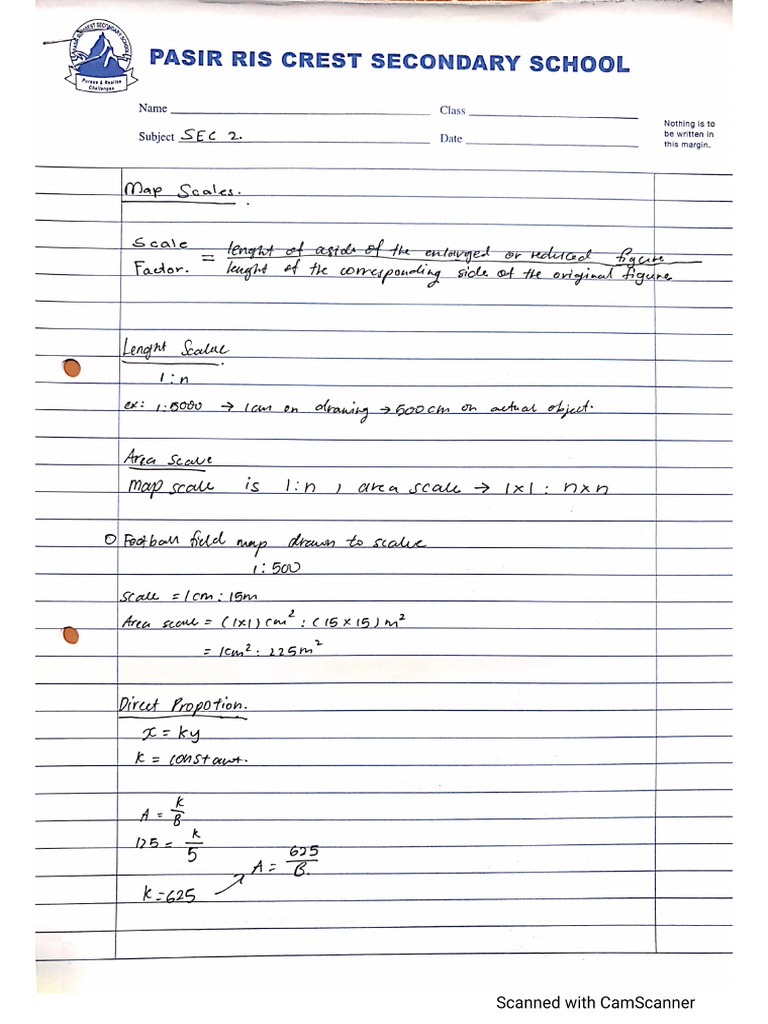 PASIR RIS CREST SECONDARY SCHOOL
PASIR RIS CREST SECONDARY SCHOOL
Pursue & Realise
Challenges
Name
Class
Subject SEC 2.
Date
Nothing is to
be written in
this margin.
Map Scales.
Scale Factor. = lenght of aside of the enlarged or reduced figure
lenght of the corresponding side of the original figure
Lenght Scalue
1:n
ex: 1:5000 → 1cm on drawing → 500cm on actual object.
Area scale
map scale is 1:n , area scale → 1×1 : n×n
O Football field map drawn to scale
1:500
scale = 1cm : 15m
Area scale = (1×1) cm² : (15 × 15) m²
= 1cm² : 225m²
Direct Propotion.
x = ky
k = constant.
A = k/B
125 = k/5
A = 625/B.
k=625
Scanned with CamScanner